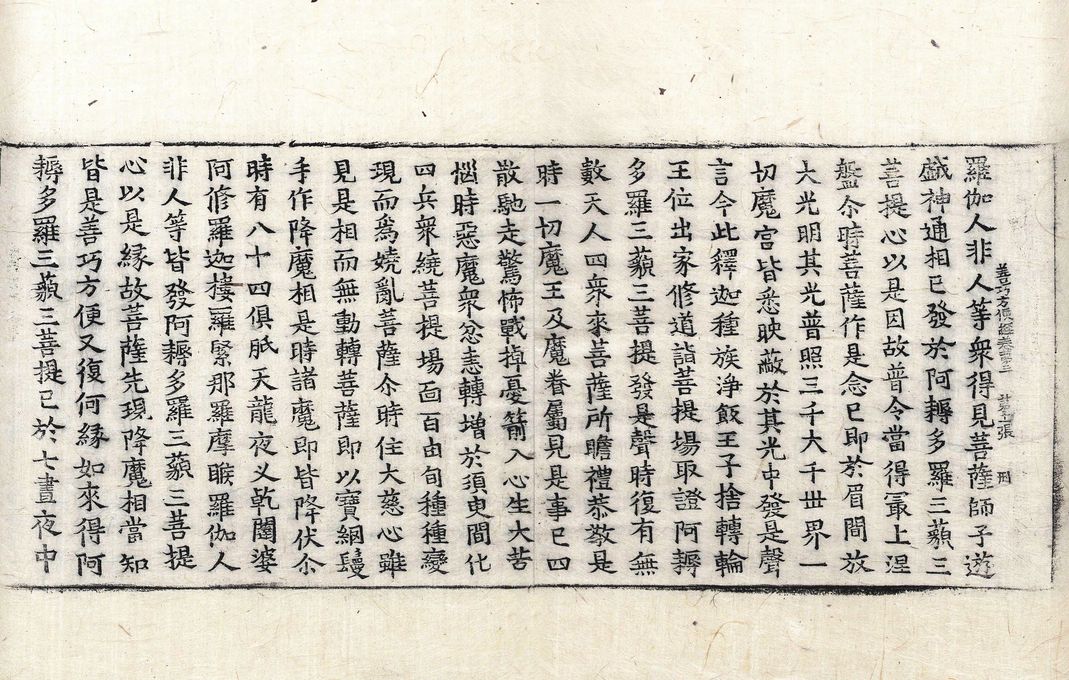 羅伽人非人等衆得見菩薩師子遊
戲神通相已發於阿耨多羅三藐三
菩提心以是因故普令當得冣上涅
盤尒時菩薩作是念已即於眉間放
大光明其光普照三千大千丗界一
切魔宮皆悉映蔽於其光中發是聲
言今此釋迦種族淨飯王子捨轉輪
王位出家修道詣菩提場取證阿耨
多羅三藐三菩提發是聲時復有無
數天人四衆來菩薩所瞻禮恭敬是
時一切魔王及魔眷屬見是事已四
散馳走驚怖戰掉憂箭入心生大苦
惱時惡魔衆忿恚轉增於須臾間化
四兵衆繞菩提場面百由旬種種變
現而爲嬈亂菩薩尒時住大慈心雖
見是相而無動轉菩薩即以寶網鬘
手作降魔相是時諸魔即皆降伏尒
時有八十四俱胝天龍夜叉乾闥婆
阿修羅迦樓羅緊那羅摩睺羅伽人
非人等皆發阿耨多羅三藐三菩提
心以是縁故菩薩先現降魔相當知
皆是善巧方便又復何縁如來得阿
耨多羅三藐三菩提已於七晝夜中
善巧方便經卷 張 刑